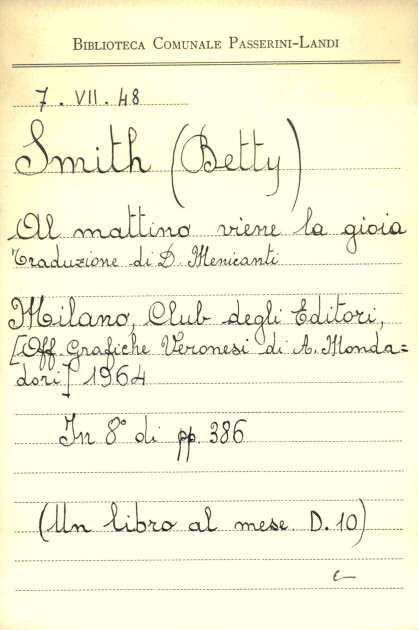 BIBLIOTECA COMUNALE PASSERINI-LANDI
7. VII. 48
Smith (Betty)
Al mattino viene la gioia
Traduzione di D. Menicanti
Milano, Club degli Editori,
[Off Grafiche Veronesi di A. Monda=
dori] 1964
In 8° di pp. 386
(Un libro al mese D. 10)